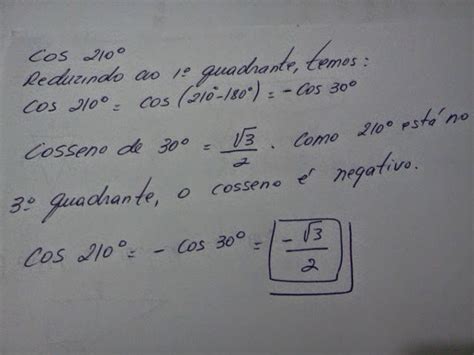 Cos 210°
Reduzindo ao 1º quadrante, temos:
Cos 210° = cos (210°-180°) = - Cos 30°
Cosseno de 30° = √3/2 . Como 210° está no
3º quadrante, o cosseno é negativo.
Cos 210° = - cos 30° = -√3/2